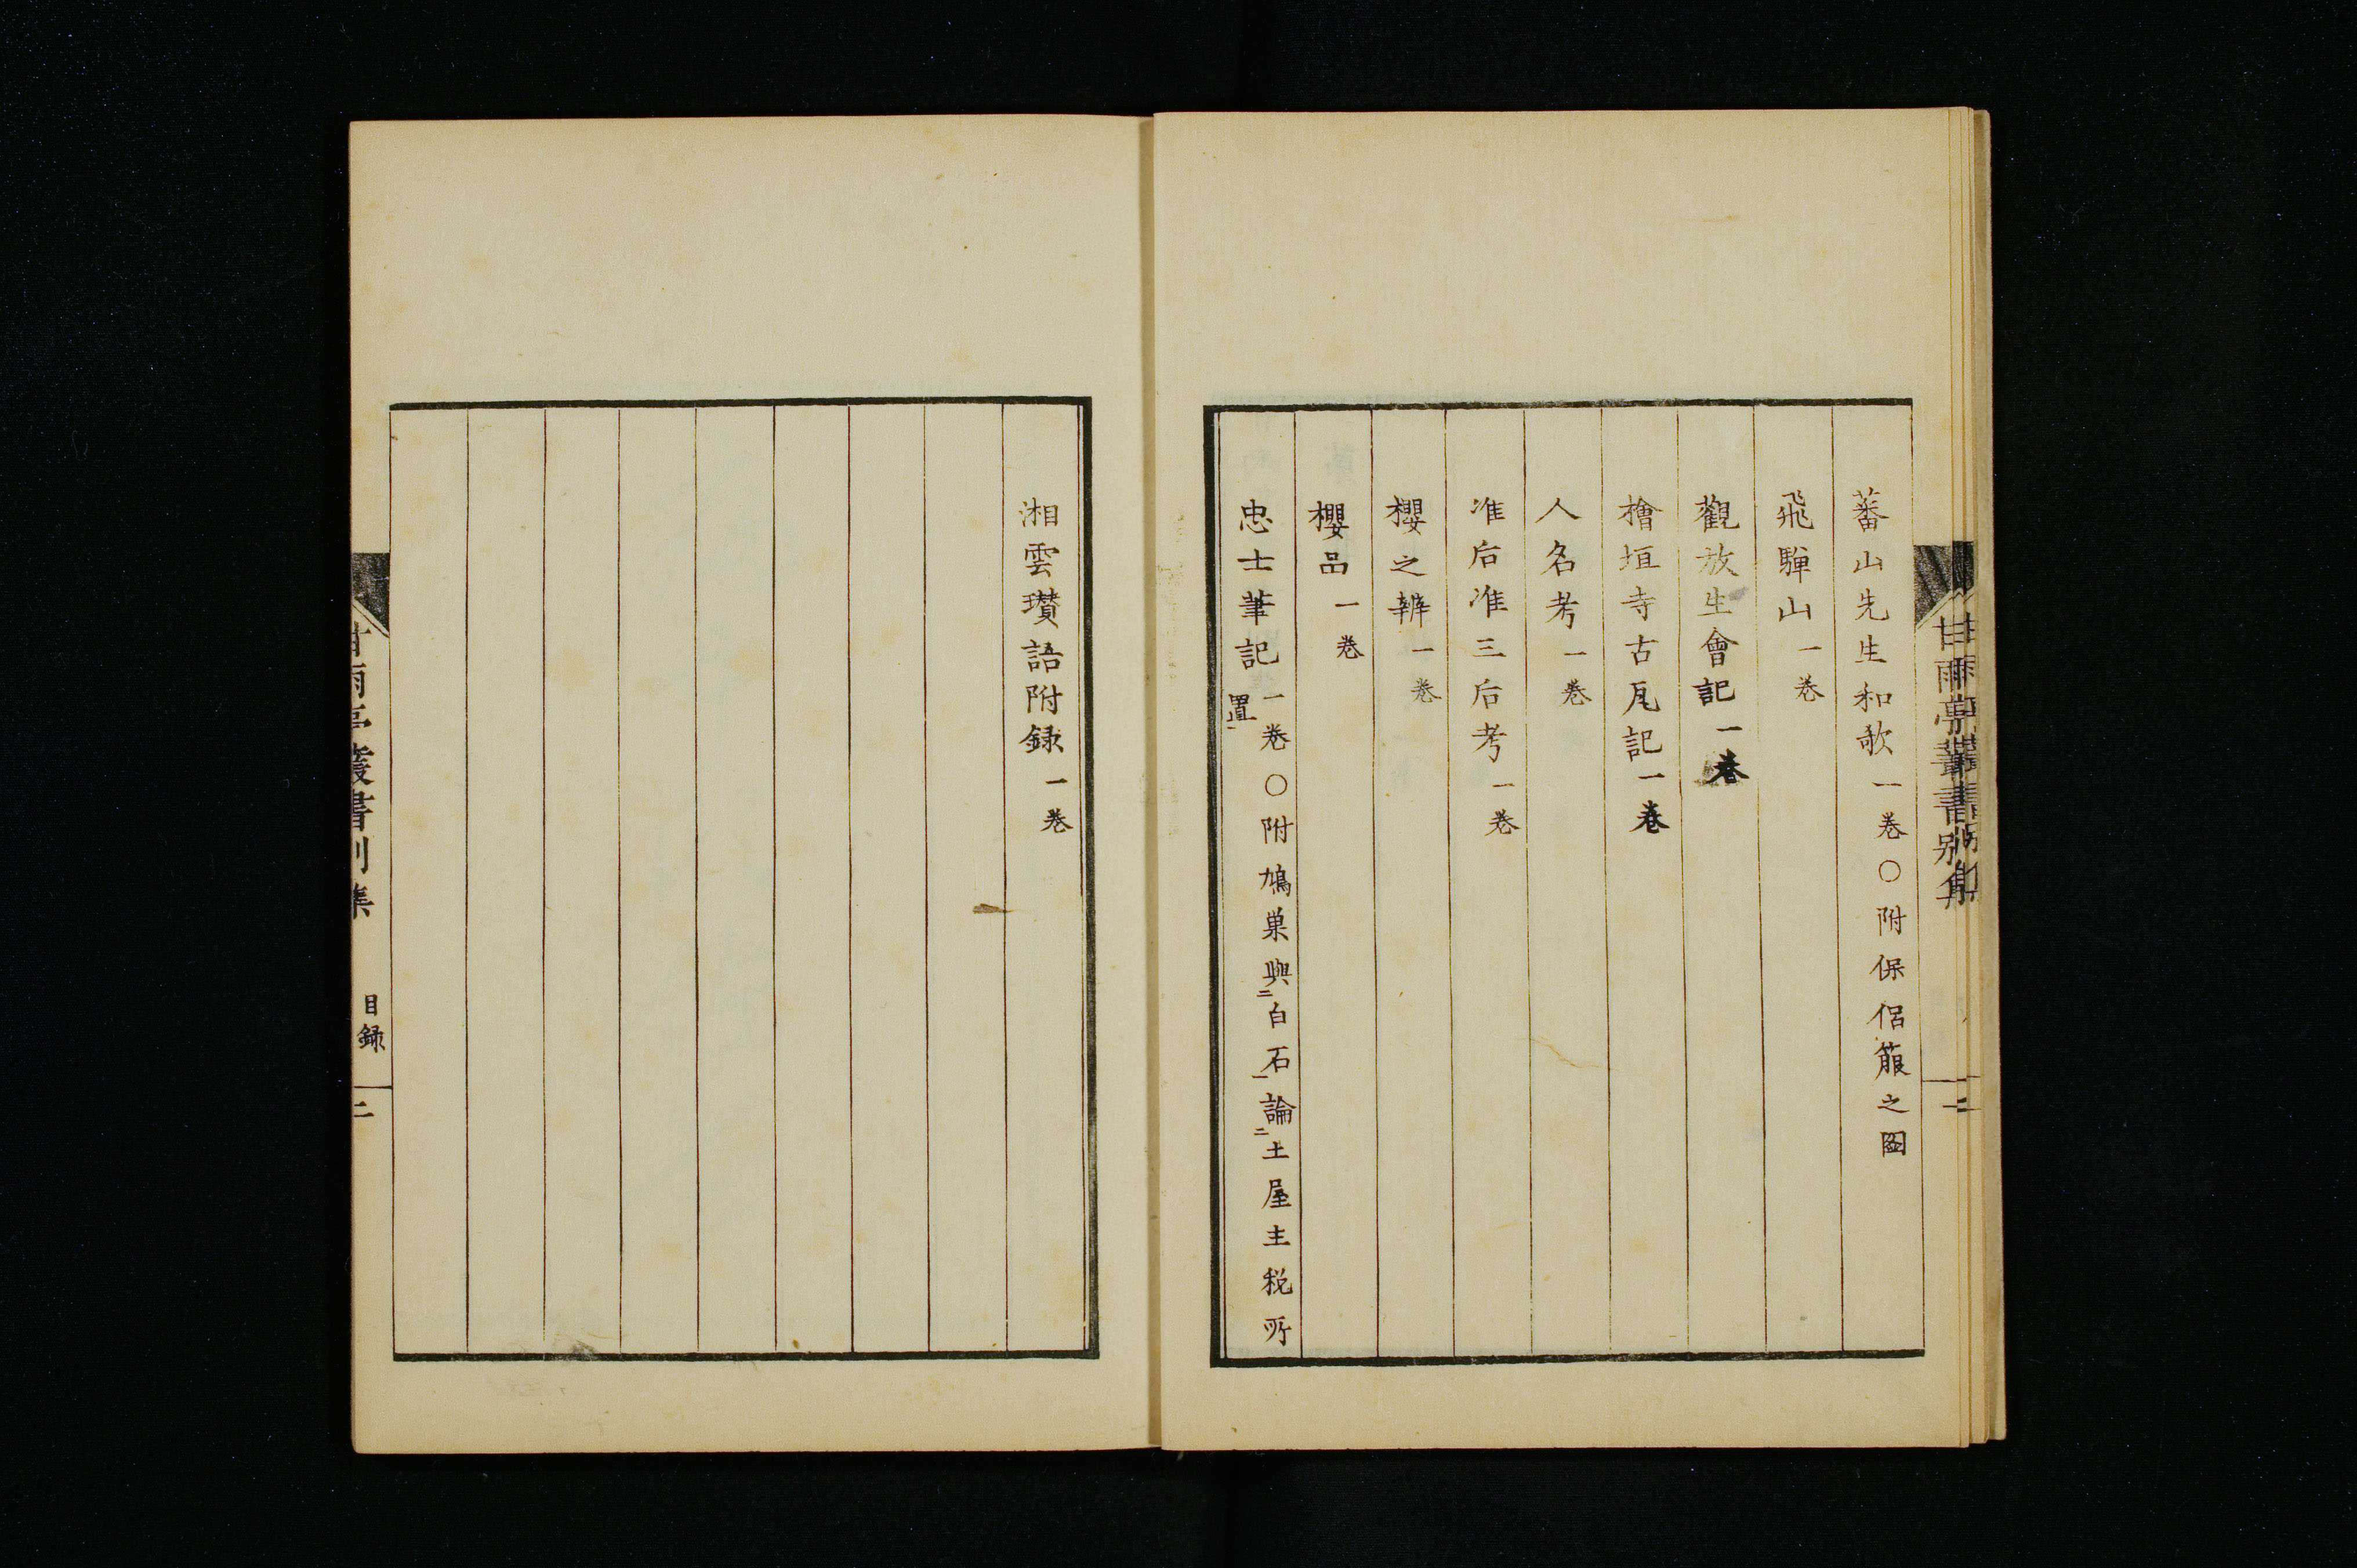 蕃山先生和歌一卷〇附保侶籠之圖
飛驒山一卷
觀放生會記一卷
檜垣寺古瓦記一卷
人名考一卷
准后准三后考一卷
櫻之辨一卷
櫻品一卷
忠士筆記一卷〇附鳩巣與二白石一論二土屋主税所
置一
湘雲瓚語附録一卷
甘雨亭叢書別集
目録
二
甘雨亭叢書別集